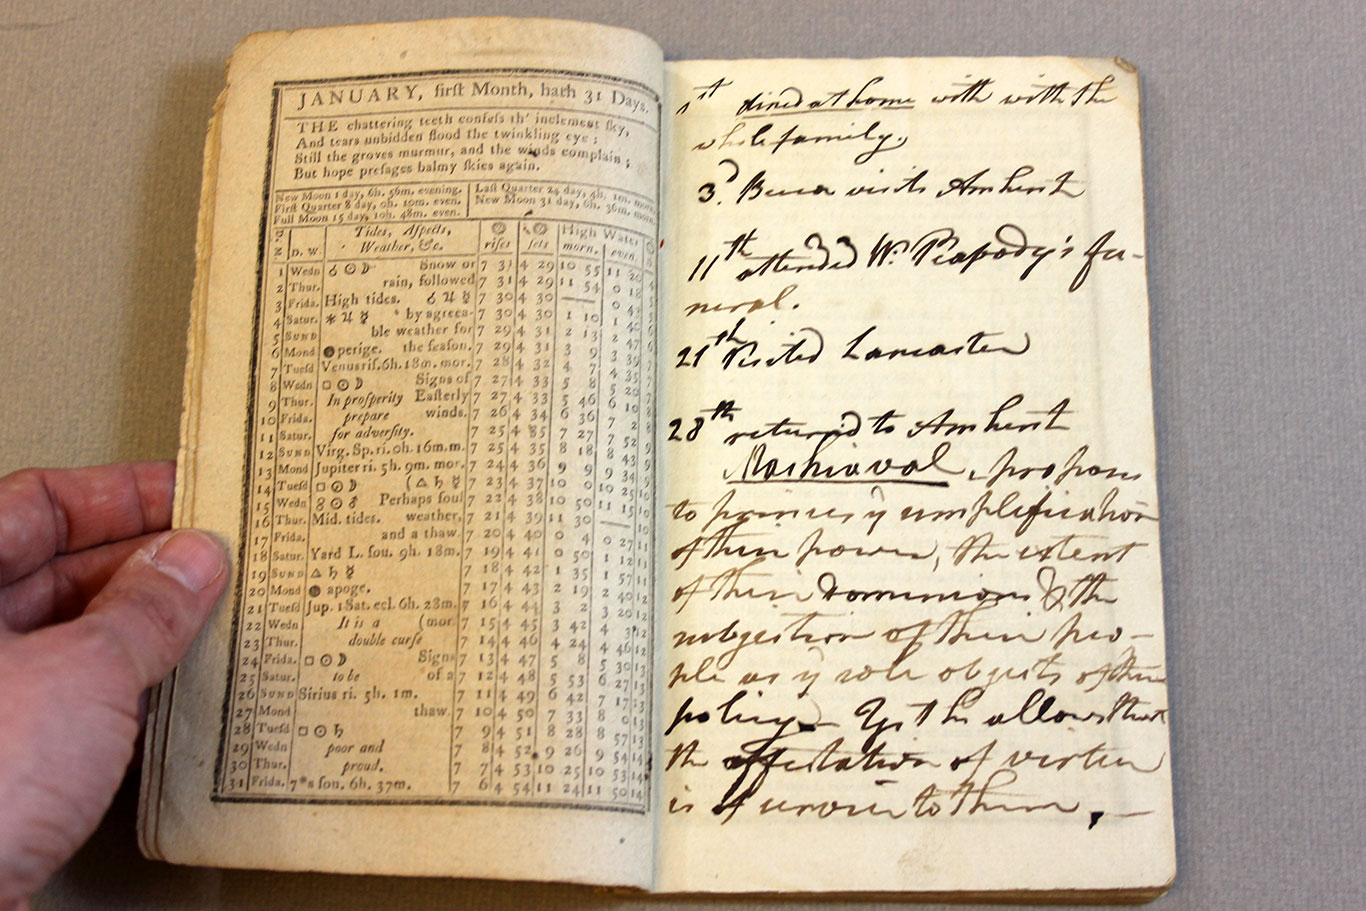 JANUARY, firſt Month, hath 31 Days.
THE chattering teeth confeſs th' inclement ſky,
And tears unbidden flood the twinkling eye;
Still the groves murmur, and the winds complain;
But hope preſages balmy ſkies again.
New Moon 1 day, 6h. 56m. evening.
Firſt Quarter 8 day, 0h. 10m. even.
Full Moon 15 day, 10h. 48m. even.
Laſt Quarter 24 day, 4h. 1m. morn.
New Moon 31 day, 6h. 36m. morn.
D. W. Tides, Aſpects, ☉ ☉ High Water
Weather, &c. riſes ſets morn. even.
1 Wedn ☌ ☉ ☽ Snow or 7 31 4 29 10 55 11 20
2 Thur. rain, followed 7 31 4 29 11 54
3 Frida. High tides. ☌ ♃ ☿ 7 30 4 30 ——
4 Satur. ⚹ ♃ ☿ by agreea- 7 30 4 30 1 10
5 SUND ble weather for 7 29 4 31 2 13
6 Mond perige. the ſeaſon. 7 29 4 31 3 9
7 Tueſd Venus riſ. 6h. 18m. mor. 7 28 4 32 4 7
8 Wedn □ ☉ ☽ Signs of 7 27 4 33 5 8
9 Thur. In proſperity Eaſterly 7 27 4 33 5 46
10 Frida. prepare winds. 7 26 4 34 6 36
11 Satur. for adverſity. 7 25 4 35 7 27
12 SUND Virg. Sp. ri. 0h. 16m. m. 7 25 4 35 8 18
13 Mond Jupiter ri. 5h. 9m. mor. 7 24 4 36 9 9
14 Tueſd □ ☉ ☽ (△ ♄ ☿ 7 23 4 37 10 0
15 Wedn 8 ☉ ♂ Perhaps foul 7 22 4 38 10 50
16 Thur. Mid. tides. weather, 7 21 4 39 11 30
17 Frida. and a thaw. 7 20 4 40 0 4
18 Satur. Yard L. ſou. 9h. 18m. 7 19 4 41 0 50
19 SUND △ ♄ ☿ 7 18 4 42 1 35
20 Mond apoge. 7 17 4 43 2 19
21 Tueſd Jup. 1 Sat. ecl. 6h. 28m. 7 16 4 44 3 2
22 Wedn It is a (mor. 7 15 4 45 3 42
23 Thur. double curſe 7 14 4 46 4 24
24 Frida. □ ☉ ☽ Signs 7 13 4 47 5 8
25 Satur. to be of a 7 12 4 48 5 53
26 SUND Sirius ri. 5h. 1m. 7 11 4 49 6 42
27 Mond thaw. 7 10 4 50 7 33
28 Tueſd □ ☉ ♄ 7 9 4 51 8 28
29 Wedn poor and 7 8 4 52 9 26
30 Thur. proud. 7 7 4 53 10 25
31 Frida. 7*s ſou. 6h. 37m. 7 6 4 54 11 24
1st dined at home with with the
whole family.
3d. visits Amherst
11th attended Wm. Peabody's fu-
neral.
21th Visited Lancaster
28th returned to Amherst
Machiaval, proposes
to princes ye amplification
of their power, the extent
of their Dominions & the
subjection of their peo-
ple as ye sole objects of their
policy. Yet he allows that
the affectation of virtue
is to them. —